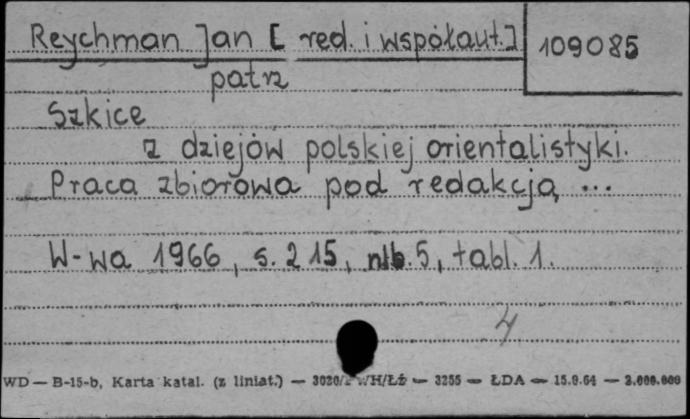 Reychman Jan [ red. i współaut.]
109085
patrz
Szkice
z dziejów polskiej orientalistyki.
Praca zbiorowa pod redakcją ...
W-wa 1966, s. 215, nlb. 5, tabl. 1.
4
WD — B-15-b, Karta katal. (z liniat.) — 3255 — ŁDA — 15.9.64 — 2.000.000